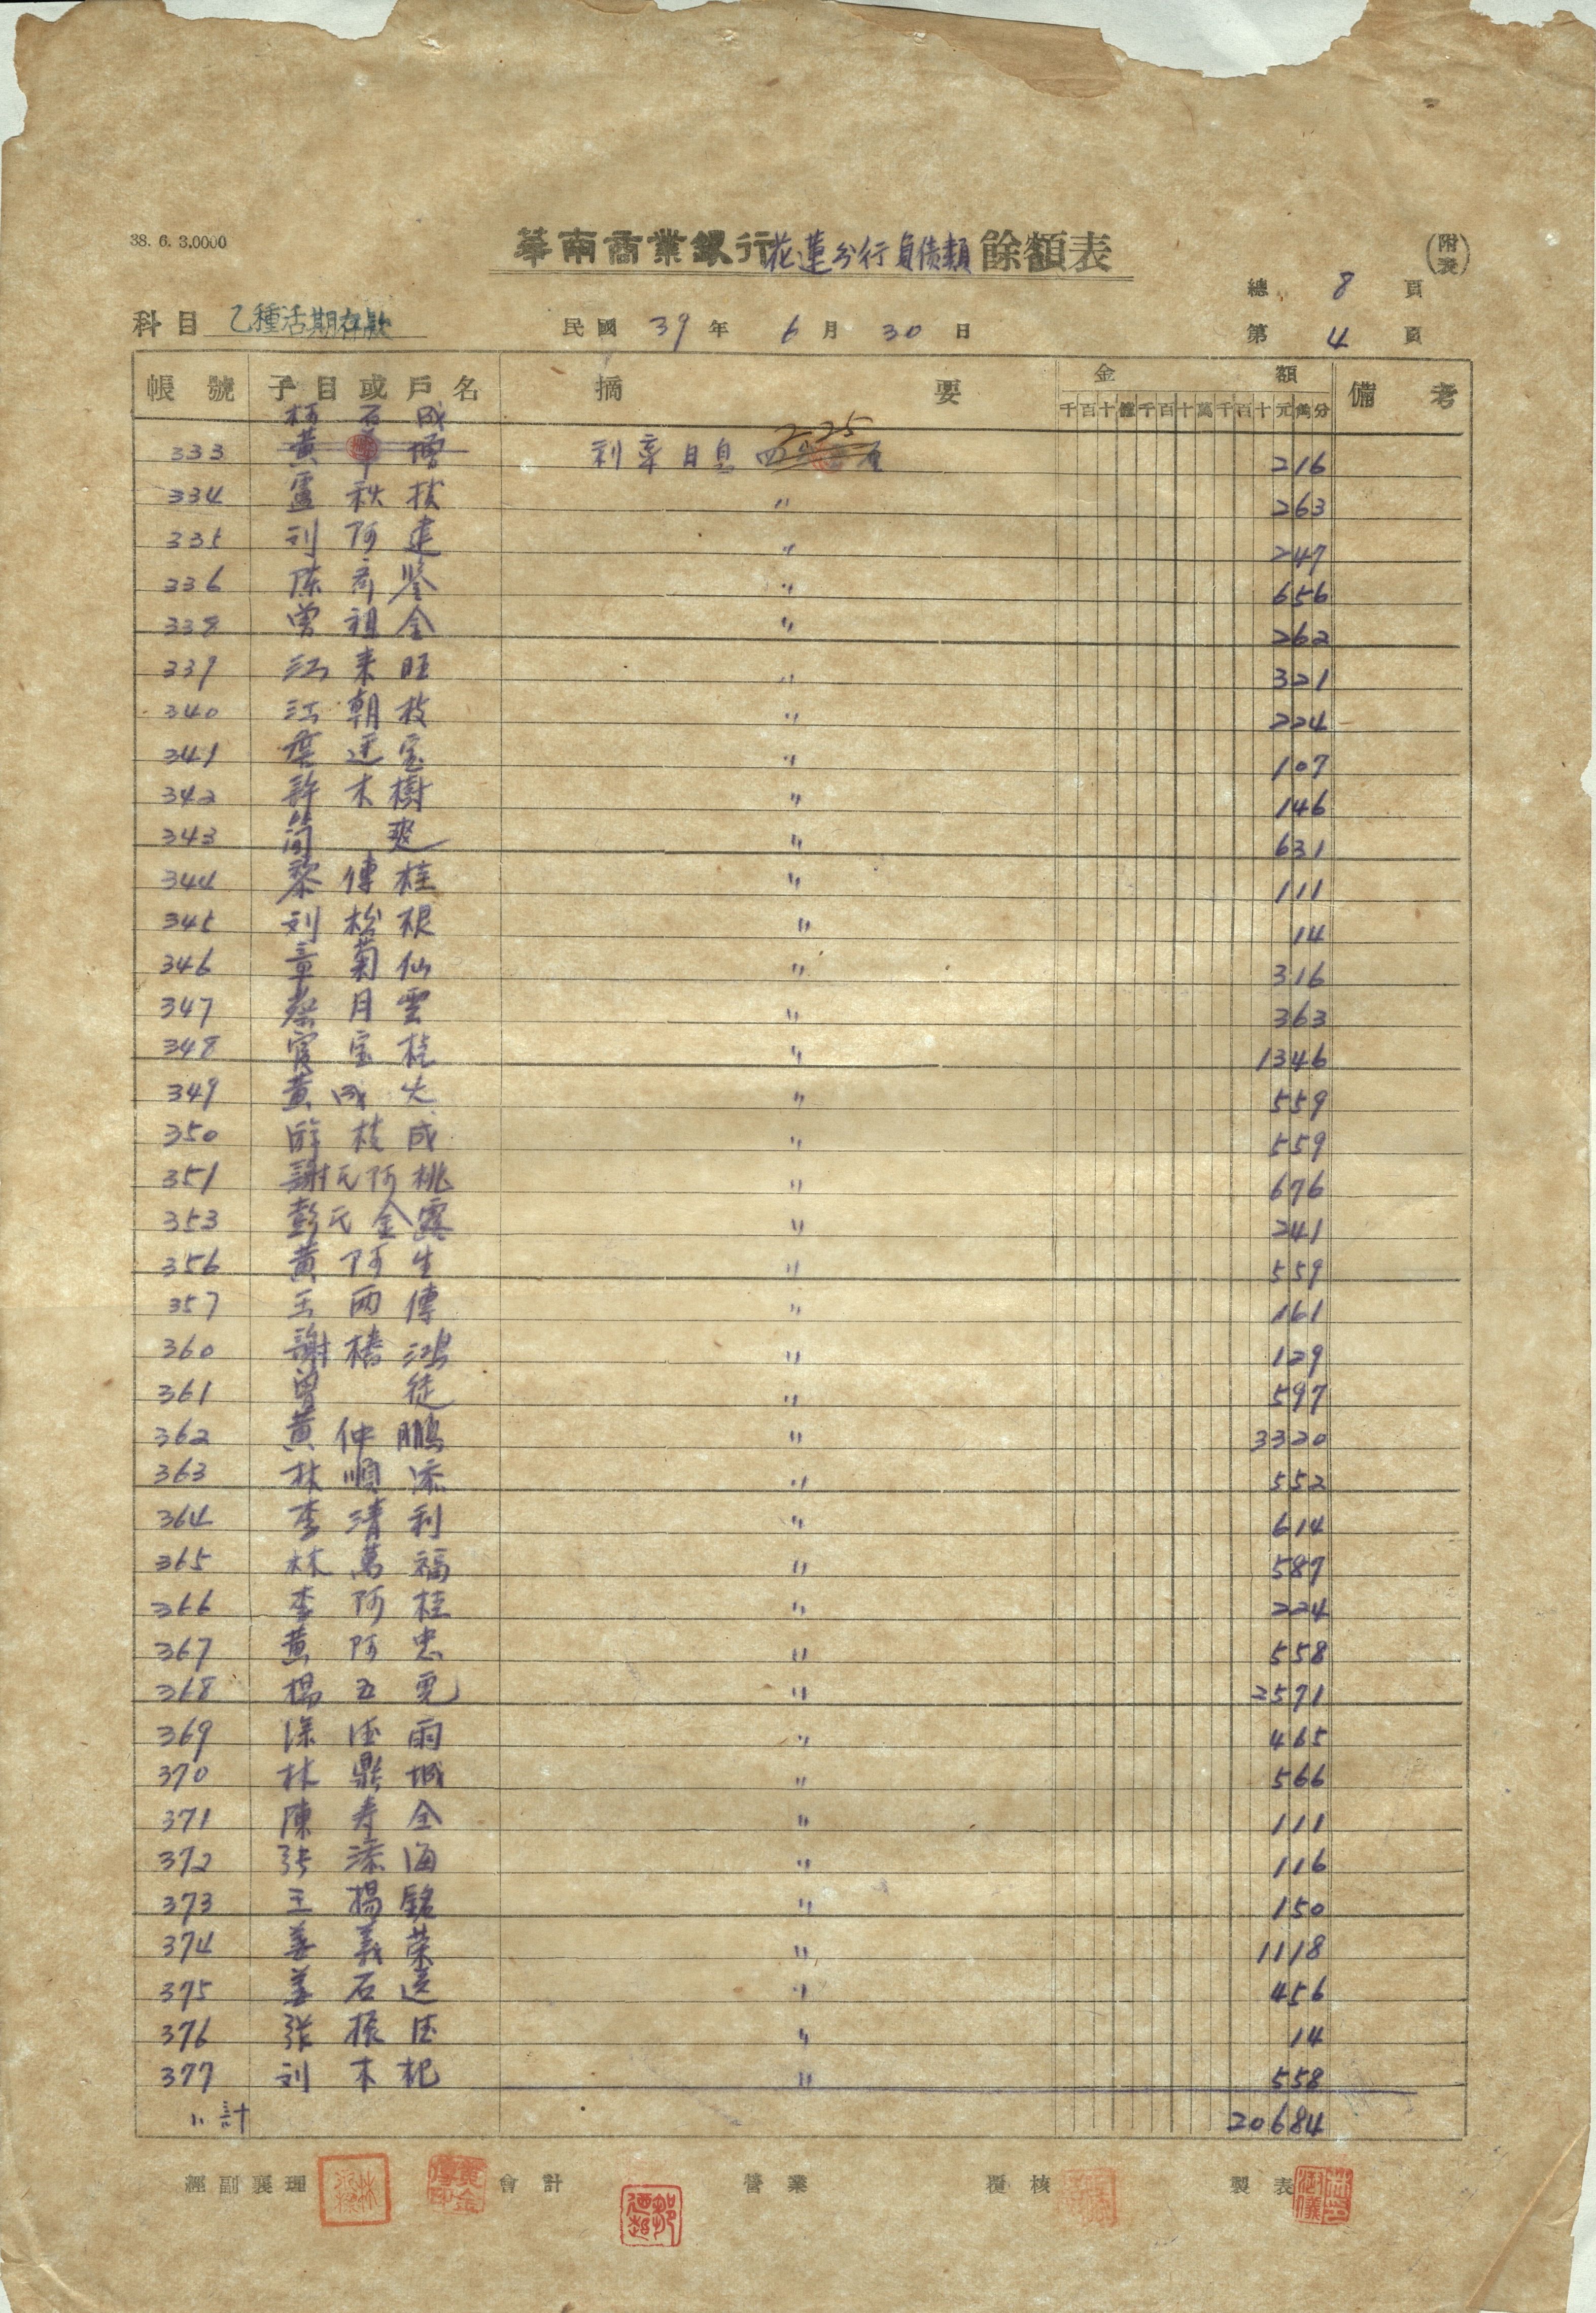 38. 6. 3.0000
華南商業銀行花蓮分行負債類餘額表
(附表)
總 8 頁
科目 乙種活期存款 民國 39 年 6 月 30 日 第 4 頁
帳號 子目或戶名 摘要 金額 備考
千百十億千百十萬千百十元角分
柯石成
333 黃 利率日息 2.25 216
334 盧秋 〃 263
335 刘阿建 〃 247
336 陈 〃 656
338 曾祖全 〃 262
339 江来旺 〃 321
340 江朝枝 〃 224
341 葉 宝 〃 107
342 許木樹 〃 146
343 簡 爽 〃 631
344 黎傳桂 〃 111
345 刘松根 〃 14
346 章菊仙 〃 316
347 蔡月雲 〃 363
348 宝桂 〃 1346
349 黃成火 〃 559
350 游桂成 〃 559
351 謝氏阿桃 〃 676
353 彭氏金露 〃 241
356 黃阿生 〃 559
357 王两傳 〃 161
360 謝 鴻 〃 129
361 曾 徒 〃 597
362 黃仲鵬 〃 3320
363 林順添 〃 552
364 李清利 〃 614
365 林萬福 〃 587
366 李阿桂 〃 224
367 黃阿忠 〃 558
368 楊五 〃 2571
369 涂 雨 〃 465
370 林鼎城 〃 566
371 陳寿全 〃 111
372 张添海 〃 116
373 王楊銘 〃 150
374 姜義荣 〃 1118
375 姜石 〃 456
376 张振 〃 14
377 刘木杞 〃 558
小計 20684
經副襄理 會計 營業 覆核 製表